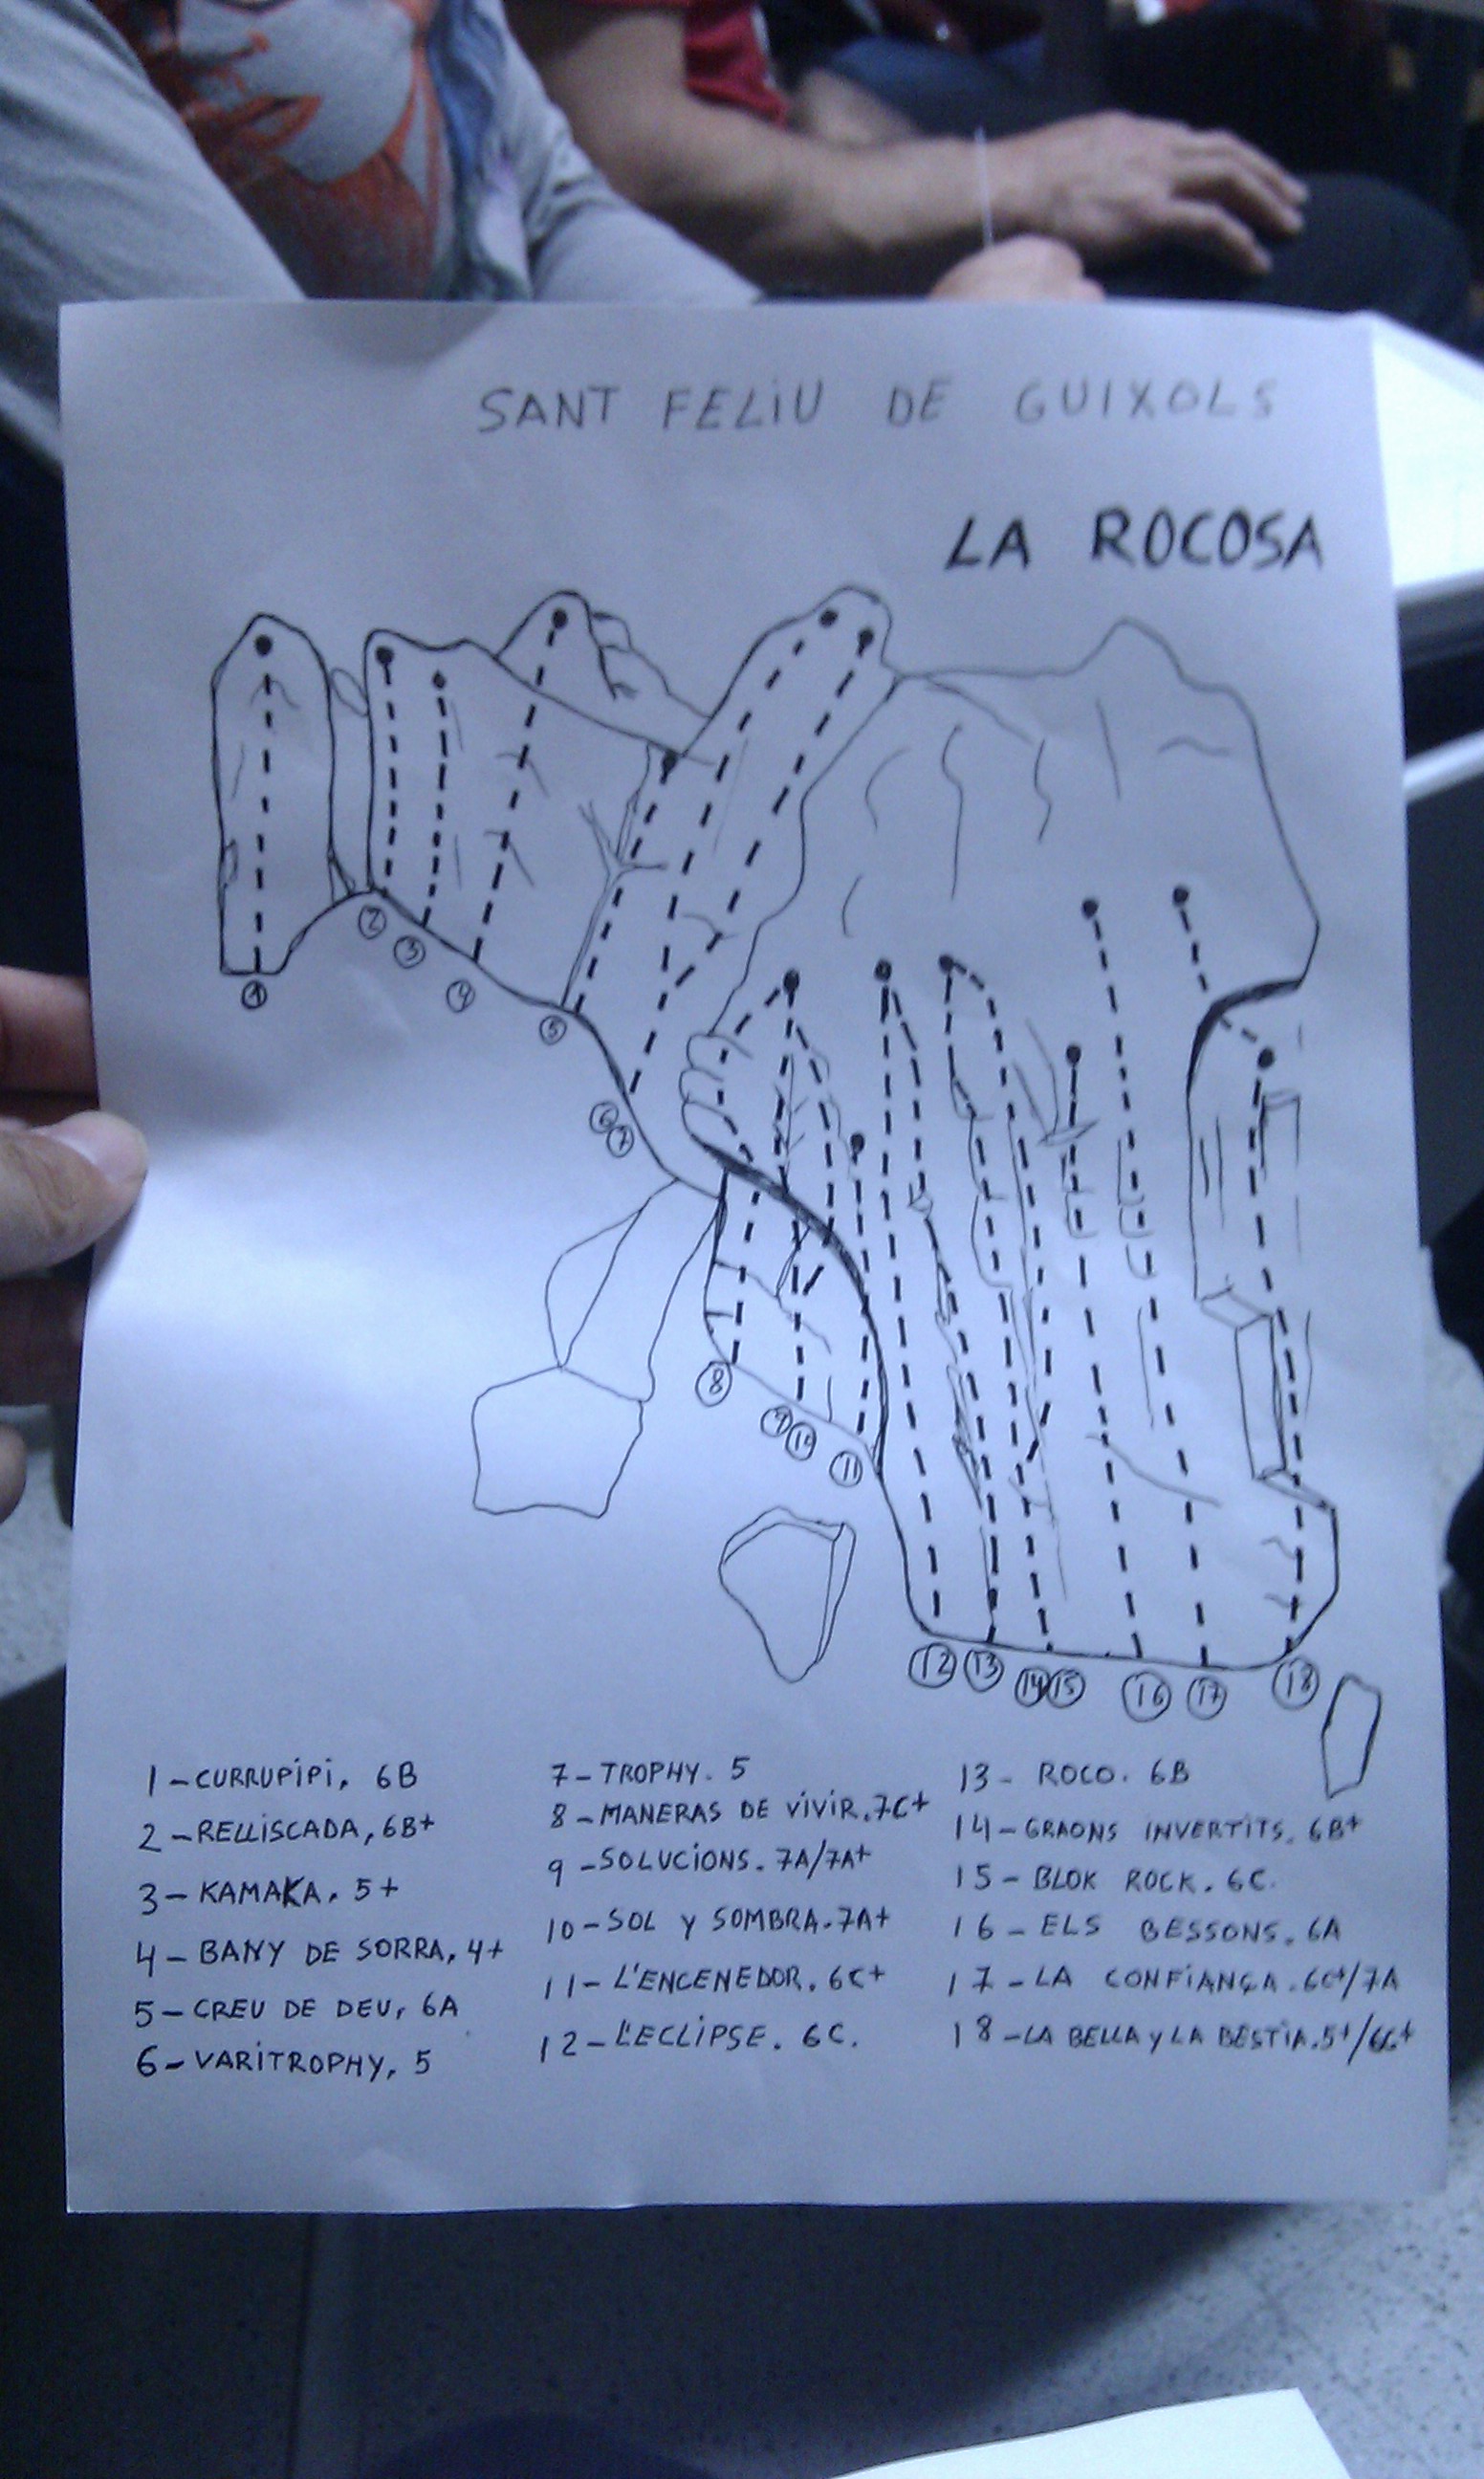 SANT FELIU DE GUIXOLS
LA ROCOSA
1
2
3
4
5
6
7
8
9
10
11
12
13
14
15
16
17
18
1-CURRUPIPI, 6B
2-RELLISCADA, 6B+
3-KAMAKA. 5+
4-BANY DE SORRA, 4+
5-CREU DE DEU, 6A
6-VARITROPHY, 5
7-TROPHY. 5
8-MANERAS DE VIVIR.7C+
9-SOLUCIONS. 7A/7A+
10-SOL Y SOMBRA.7A+
11-L'ENCENEDOR. 6C+
12-L'ECLIPSE. 6C.
13- ROCO. 6B
14-GRAONS INVERTITS. 6B+
15-BLOK ROCK. 6C.
16-ELS BESSONS. 6A
17-LA CONFIANÇA.6C+/7A
18-LA BELLA Y LA BESTIA.5+/6C+